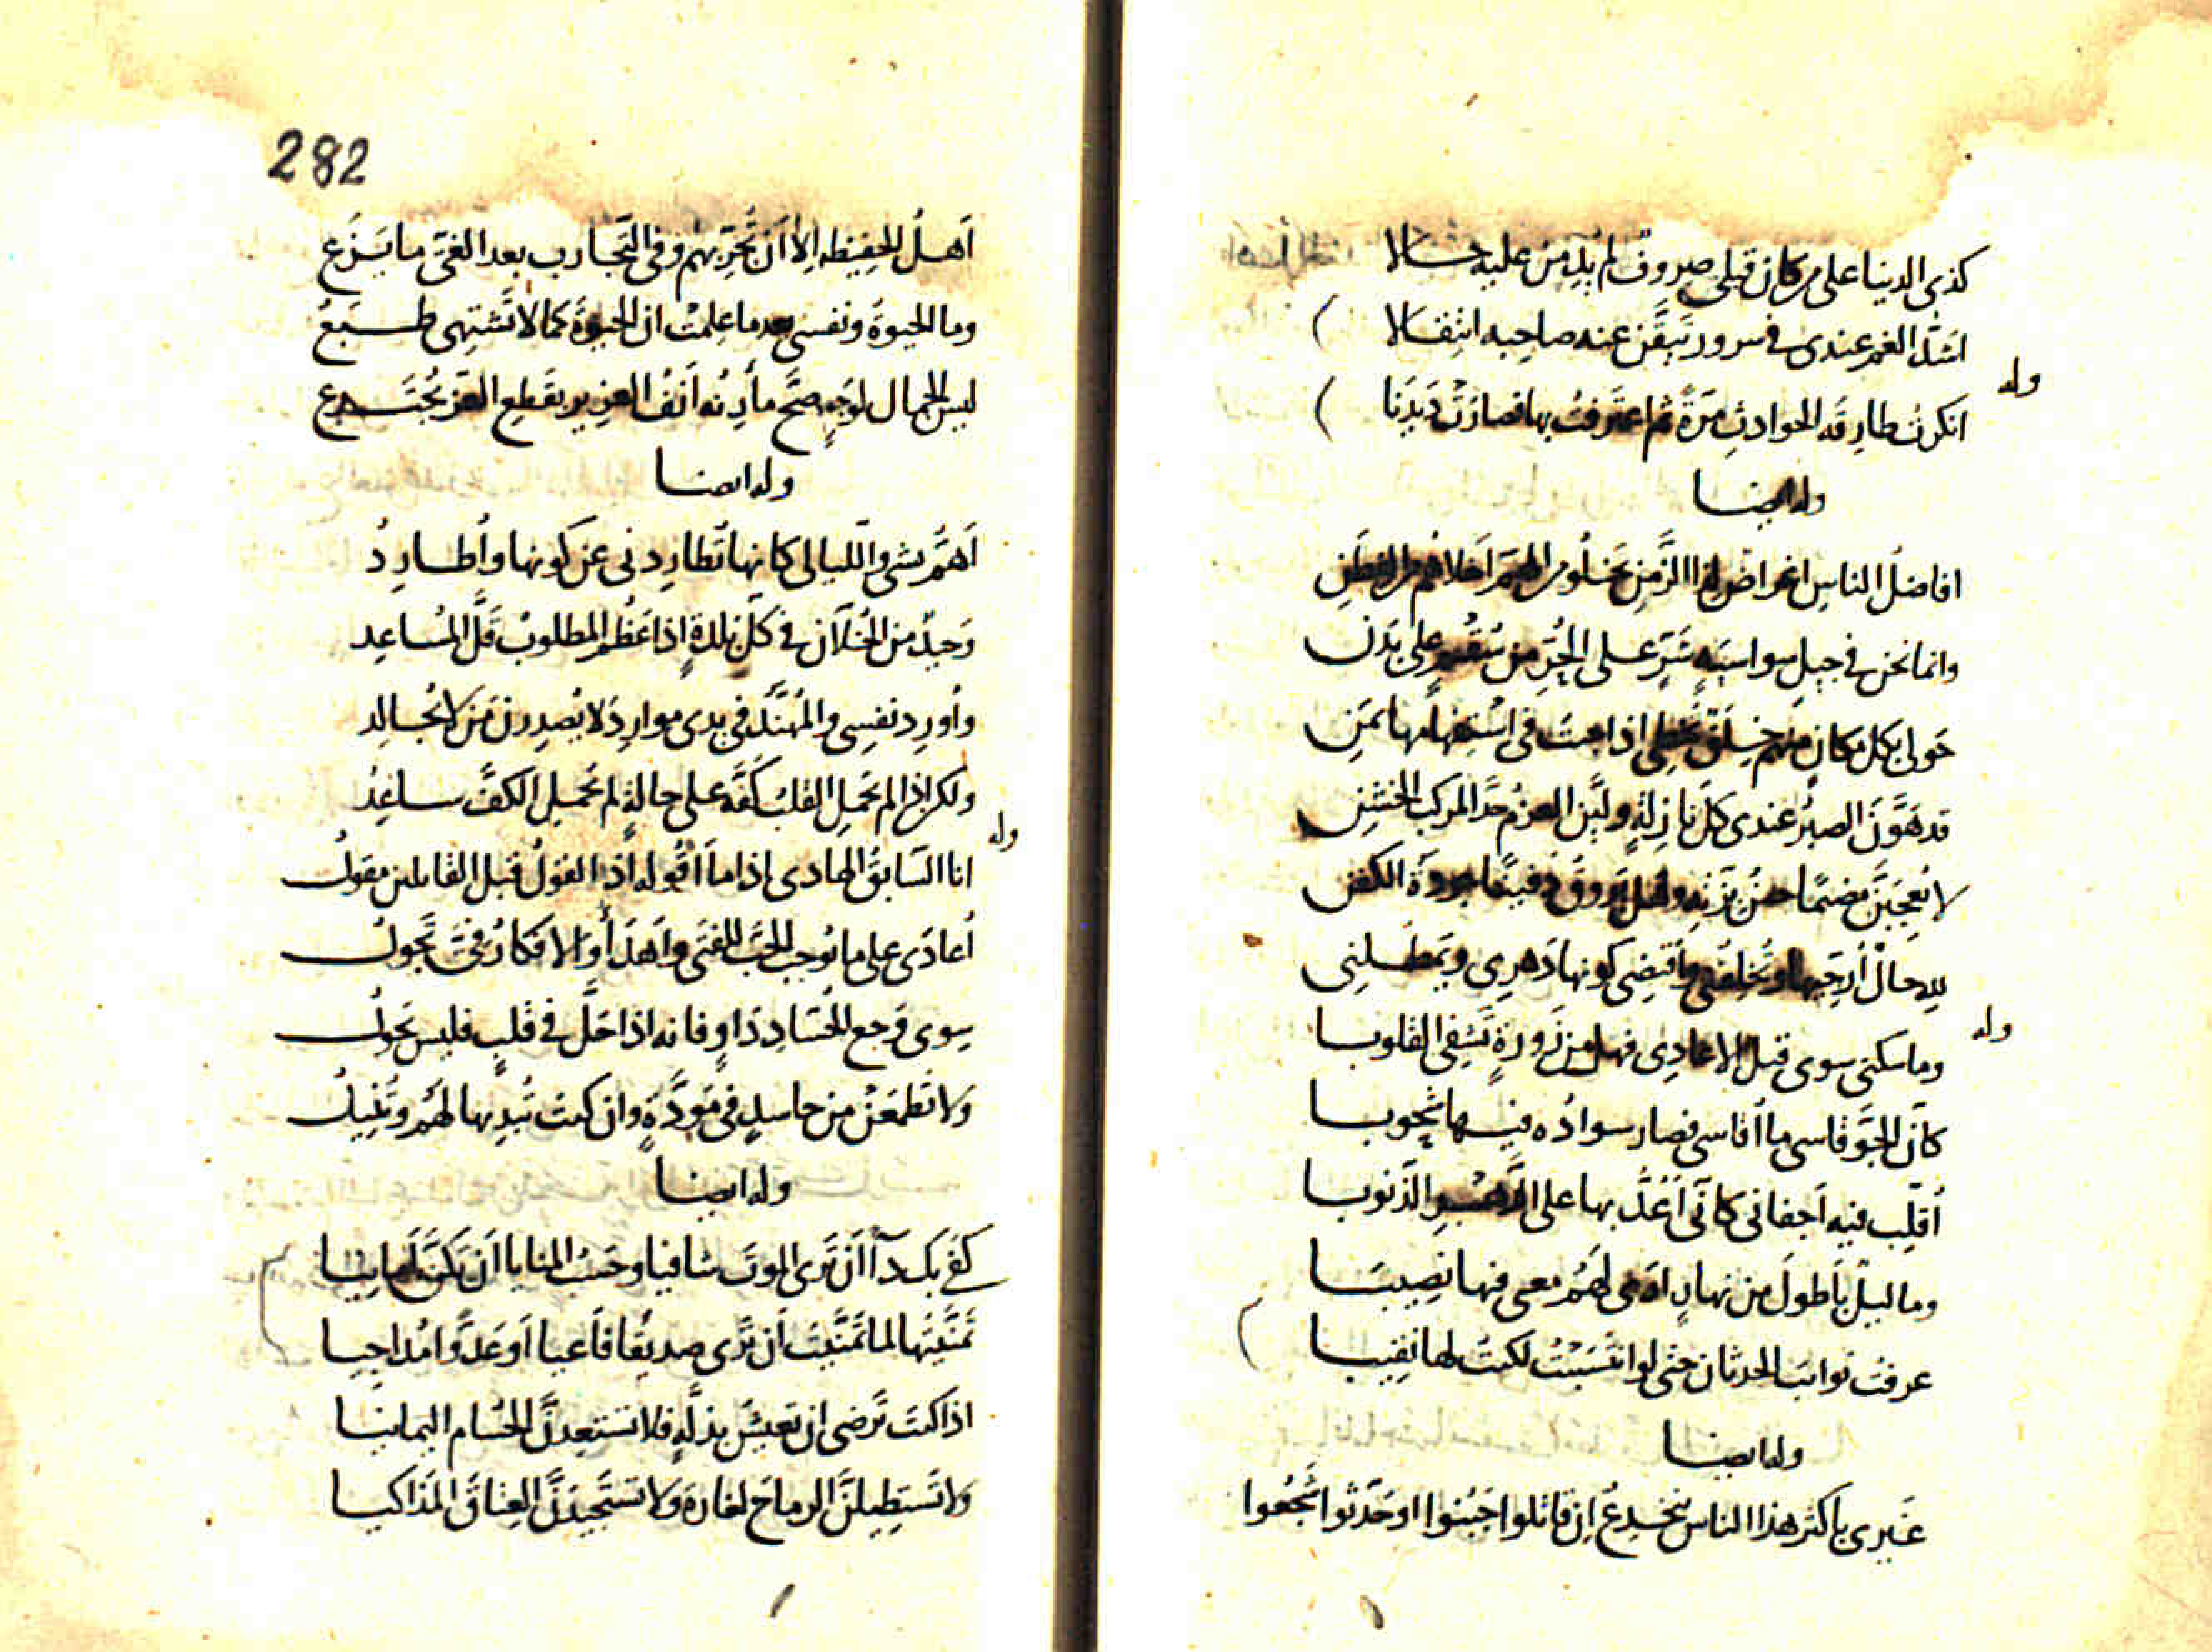 كذى الدنيا على من كان قبلى صروف لم يدِمن عليه حالا
اشدّ الغمّ عندى فى سرور تيقّن عنه صاحبه انتقالا
وله
انكرتُ طارقه الحوادثِ مرّةً ثم اعترفتُ بها فصارَتْ دَيدَنا
وله ايضا
افاضلُ الناسِ اغراضٌ لذا الزَّمنِ يَخلُو من الهمّ اخلاهم من الفطَنِ
وانما نحن فى جيلٍ سواسِيَهٍ شرٍّ على الحُرِّ من سُقمٍ على بَدَن
حَولى بكل مكانٍ منهم خِلَقٌ تخطى اذا جئتَ فى اسْتِفهامها بمَنِ
قد هَوَّنَ الصبرُ عندى كلّ نازلةٍ وليَّن العزمُ حدَّ المركب الخشنِ
لا يُعجبَنَّ مضيمًا حسنُ بزّتهِ وهل يروقُ دفينًا جودةُ الكفن
لله حالٌ أُرجّيها وتُخلِفُنى واقتضى كونها دَهرى ويمطلنى
وله
وما سكنى سوى قتل الاعادى فهل من زَورةٍ تَشفى القلوبا
كأن الجوّ قاسى ما اُقاسى فصار سوادُه فيها شحوبا
اُقلّب فيه اَجفانى كانّى اَعُدُّ بها على الدَّهرِ الذّنوبا
وما ليلٌ باَطولَ من نهارٍ لهُم معى فيها نصيبا
عرفتُ نوائب الحدثان حتى لو انتَسَبْتُ لكنتُ لها نقيبا
وله ايضا
غيرى باكثر هذا الناس ينخدِعُ اِن قاتلوا جَبُنوا او حَدَّثوا شَجُعوا
282
اَهلُ الحفيظه اِلا اَن تُجرّبهم وفى التَّجارب بعد الغىّ ما يَزَع
وما الحيوةُ ونفسى بعد ما علمتْ ان الحيوةَ كما لا تَشتهى طبَعُ
ليس الجمال لوَجهٍ صَحَّ مأرِنُه اَنفُ العزيز بقطعِ العزّ يُجتَدع
وله ايضا
اَهمُّ بشىءٍ واللّيالى كانها تُطاردنى عن كونها واُطاردُ
وَحيدٌ من الخُلّان فى كلّ بلدةٍ اذا عَظُم المطلوبُ قَلَّ المُساعِد
واُورِد نفسِى والمُهنَّد فى يدى موارِدَ لا يُصدِرنَ مَن لا يُجالِد
ولكن اذا لم يَحمِلِ القلبُ كفَّه على حالةٍ لم تحملِ الكفَّ ساعِدُ
وله
انا السّابقُ الهادى اذا ما اَقُوله اذ القولُ قبل القائلين مقولُ
اُعادَى على ما يُوجب الحبّ للفتى واَهدأُ والافكارُ فىَّ تَجولُ
سِوى وَجع الحُسّادِ دَاوِ فانه اذا حَلَّ فى قلبٍ فليس يَحولُ
ولا تَطمَعَنْ من حاسدٍ فى مَودّةٍ وان كنت تُبدِيها لهُم وتُنيلُ
وله ايضا
كفى بك دآءً اَن تَرى الموتَ شافيا وحَسبُ المنايا اَن يَكُنَّ اَمانِيا
تَمنَّيتَها لما تَمنَّيتَ اَن تَرى صديقًا فاَعيا اَو عَدوًّا مُداجيا
اذا كنتَ تَرضى ان تعيشَ بذلَّةٍ فلا تستعدنَّ الحُسام اليمانيا
ولا تَستَطِيلنَّ الرماحَ لغارةٍ ولا تَستَجيدَنَّ العِتاقَ المَذاكيا